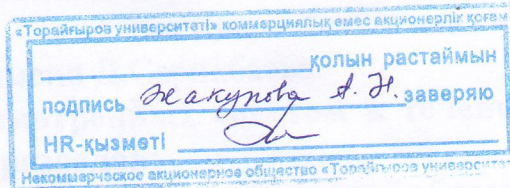 «Торайғыров университеті» коммерциялық емес акционерлік қоғам
қолын растаймын
подпись Жакупова А. Н. заверяю
HR-қызметі
Некоммерческое акционерное общество «Торайгыров университет